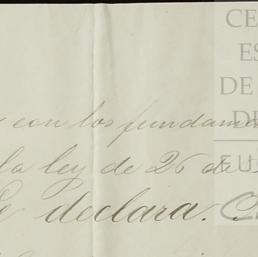 CE
ES
DE
DE
y con los fundame
la ley de 26 de
EUS
se declara.